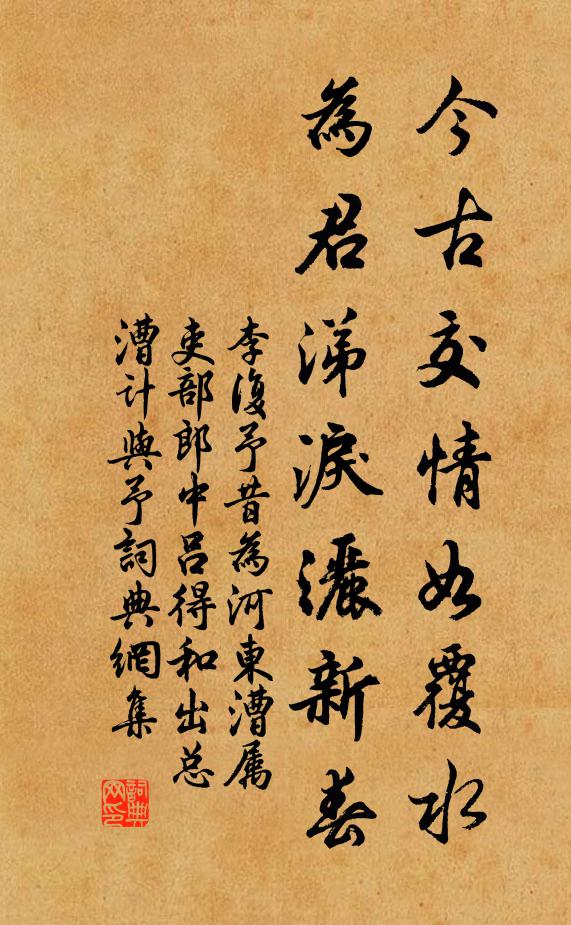 今古交情如覆水
為君涕淚灑新春
李復予昔為河東漕属
吏部郎中呂得和出总
漕计與予詞典網集
詞典
网印